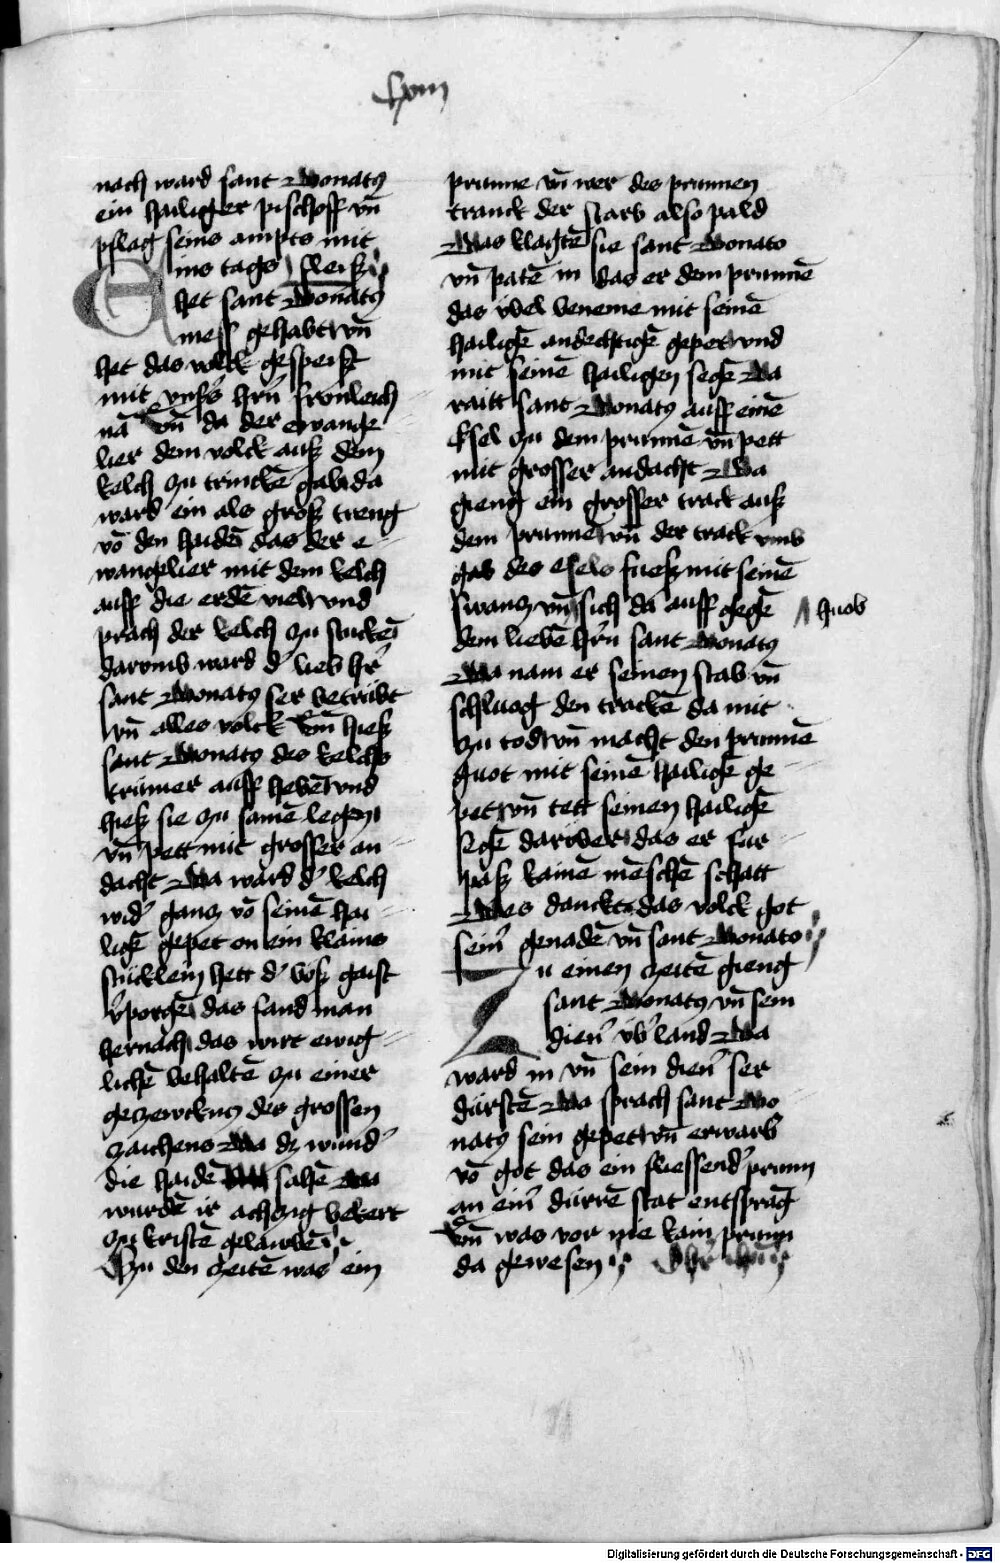 lxviii
nach ward sant Donatꝰ
ein hailiger pischoff vn̄
pflag seins ampts mit
Eins tags fleisz
het sant Donatꝰ
mess gehabt vn̄
het das volck gespeist
mit vnsers hrn̄ fronleich
nā vn̄ da der ewange
lier dem volck ausz dem
kelch zu trincke͂ gab da
ward ein als grosz treng
vō den haidē das der e
wangelier mit dem kelch
auff die erdē viel vnd
prach der kelch zu stuckē
darvmb ward dˀ lieb hˀr
sant Donatꝰ ser betrübt
vn̄ alles volck vn̄ hiesz
sant Donatꝰ des kelchs
trümer auff hebē vnd
hiesz sie zu samē legen
vn̄ pett mit grosser an
dacht Da ward dˀ kelch
widˀ gancz vō seinē hai
ligē gepet on ein klains
stücklein hett dˀ bösz gaist
vˀporgē das fand man
hernach das wirt ewig
lichē behaltē zu einer
geczewcknus des grossen
zaichens Da dz wundˀ
die haidē sahē Da
wurdē ir achczig bekert
zu kristē gelaubē
Zu den zeitē was ein
prunne vn̄ wer des prunnen
tranck der starb also pald
Das klagtē sie sant Donato
vn̄ patē in das er dem prunnē
das übel beneme mit seinē
hailigē andechtigē gepet vnd
mit seinē hailigen segē Da
raitt sant Donatꝰ auff einē
esel zu dem prunnē vn̄ pett
mit grosser andacht Da
gieng ein grosser track ausz
dem prunnē vn̄ der track vmb
gab des esels füesz mit seinē
swancz vn̄ sich da auff gegē
huob
dem liebē hˀrn sant Donatꝰ
Da nam er seinen stab vn̄
schluog den trackē da mit
zu tod vn̄ macht den prunnē
guot mit seinē hailigē ge
pet vn̄ tett seinen hailigē
segē darüber das er für
pasz kainē mēschē schatt
Des danckt das volck got
seinˀ genadē vn̄ sant Donato
Zu einen zeitē gieng
sant Donatꝰ vn̄ sein
dienˀ übˀ land Da
ward in vn̄ sein dienˀ ser
dürstē Da sprach sant Do
natꝰ sein gepet vn̄ erwarb
vō got das ein fliessendˀ prunn
an einˀ dürrē stat entsprāg
vn̄ was vor nie kain prunn
da gewesen